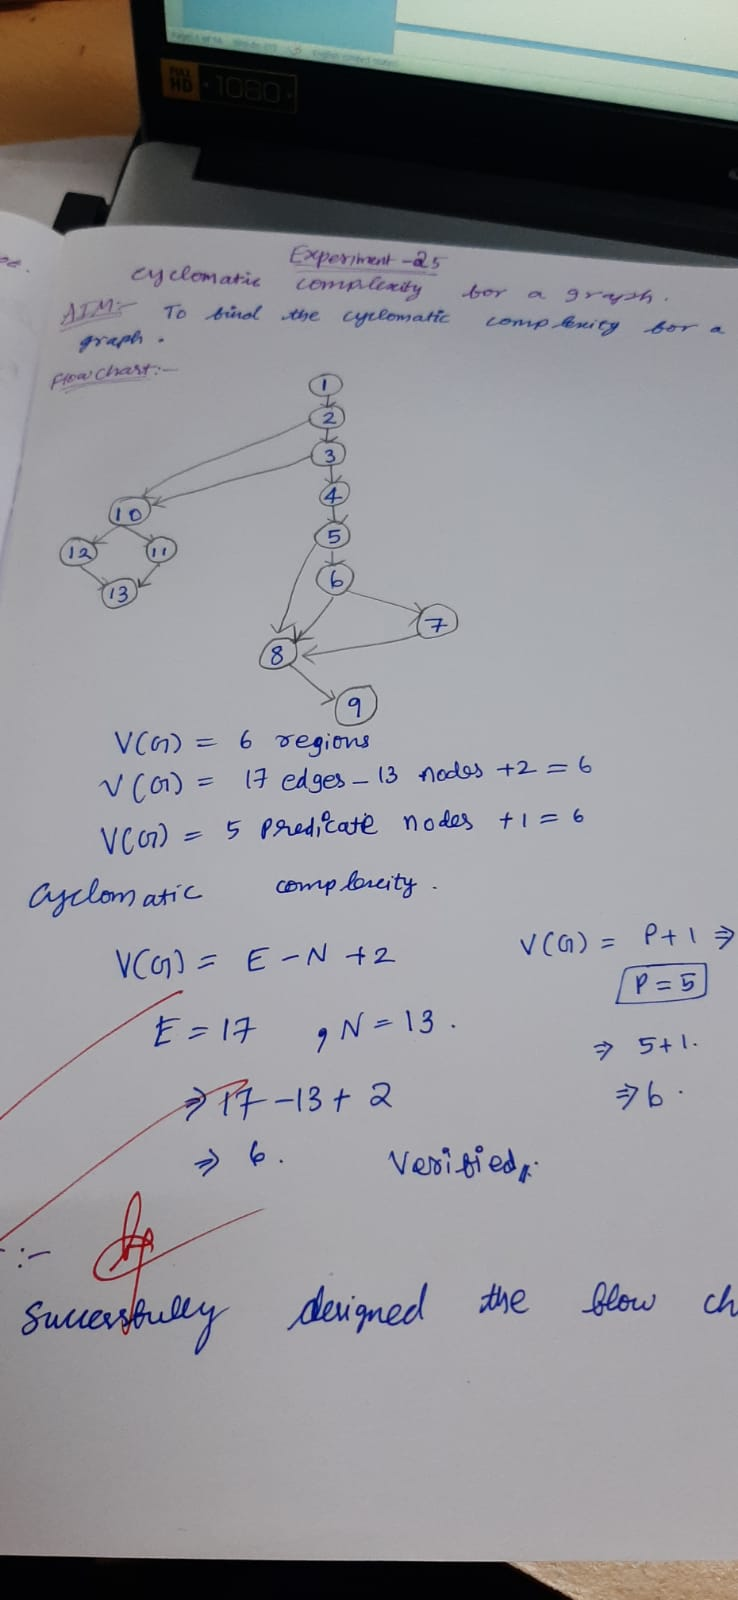 FULL HD 1080
Experiment-25
cyclomatic complexity for a graph.
AIM:- To find the cyclomatic complexity for a
graph.
Flow chart:-
1
2
3
4
10
5
12
11
6
13
7
8
9
V(G) = 6 regions
V(G) = 17 edges - 13 nodes +2 = 6
V(G) = 5 predicate nodes +1 = 6
Cyclomatic complexity.
V(G) = E - N +2
V(G) = P+1 ⇒
P = 5
E = 17 , N = 13.
⇒ 5+1.
⇒ 17 -13 + 2
⇒ 6.
⇒ 6.
Verified
:-
Successfully designed the flow ch